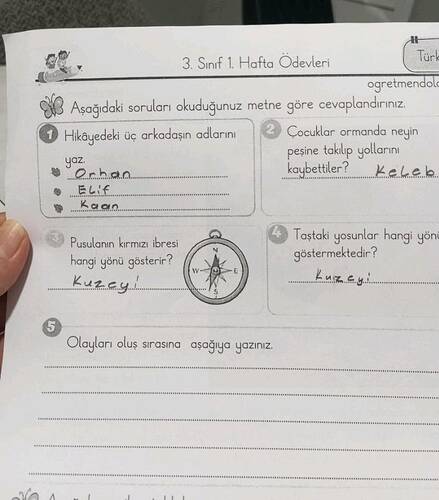 3. Sınıf 1. Hafta Ödevleri
Türk
ogretmendolo
Aşağıdaki soruları okuduğunuz metne göre cevaplandırınız.
1 Hikâyedeki üç arkadaşın adlarını
yaz.
Orhan
Elif
Kaan
2 Çocuklar ormanda neyin
peşine takılıp yollarını
kaybettiler? Keleb
3 Pusulanın kırmızı ibresi
hangi yönü gösterir?
Kuzeyi
N
W E
S
4 Taştaki yosunlar hangi yöni
göstermektedir?
Kuzeyi
5
Olayları oluş sırasına aşağıya yazınız.